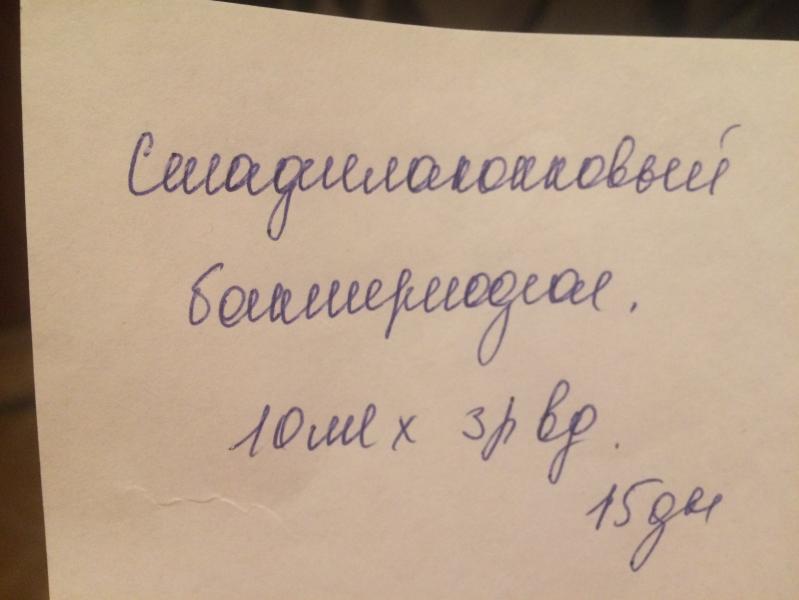 Стафилококковый
бактериофаг.
10мл х 3р вд.
15дн